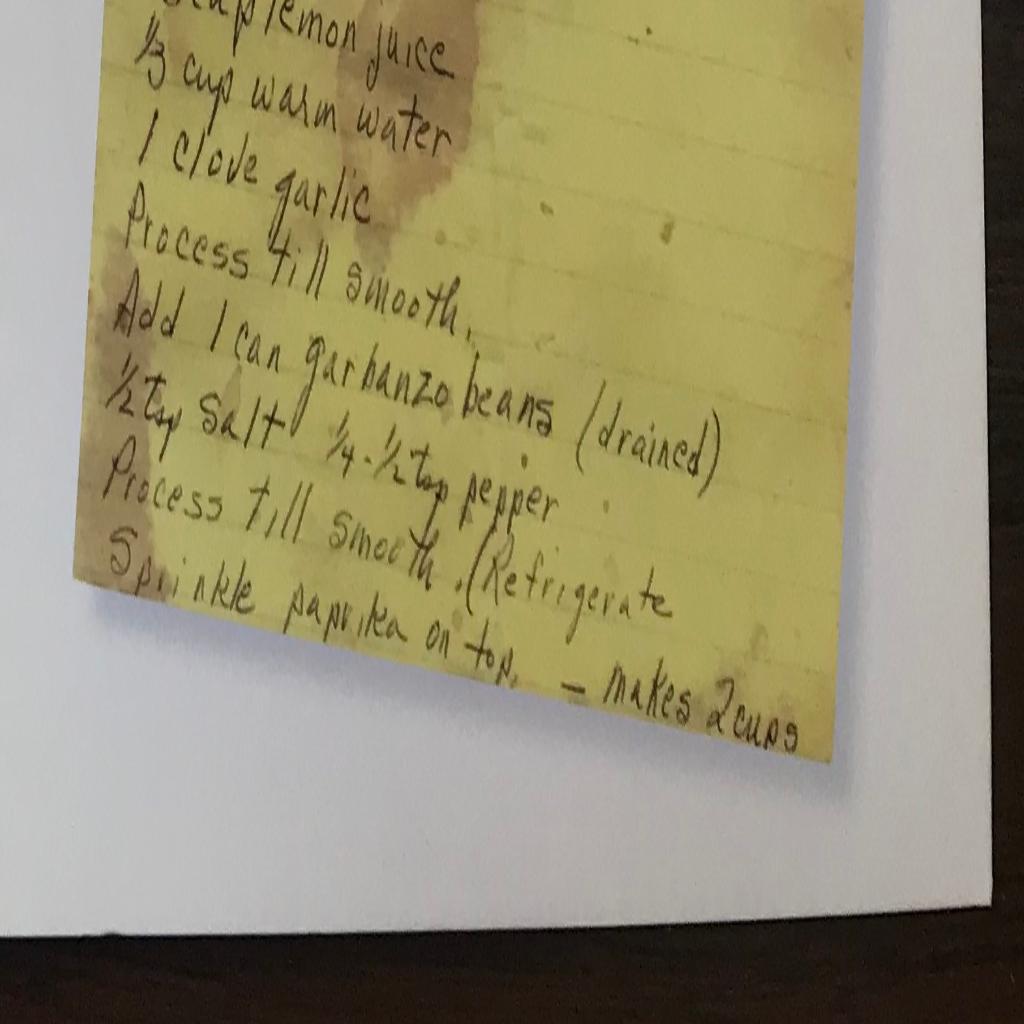 cup lemon juice
1/3 cup warm water
1 clove garlic
Process till smooth.
Add 1 can garbanzo beans (drained)
1/2 tsp salt 1/4-1/2 tsp pepper
Process till smooth. (Refrigerate
Sprinkle paprika on top. - makes 2 cups